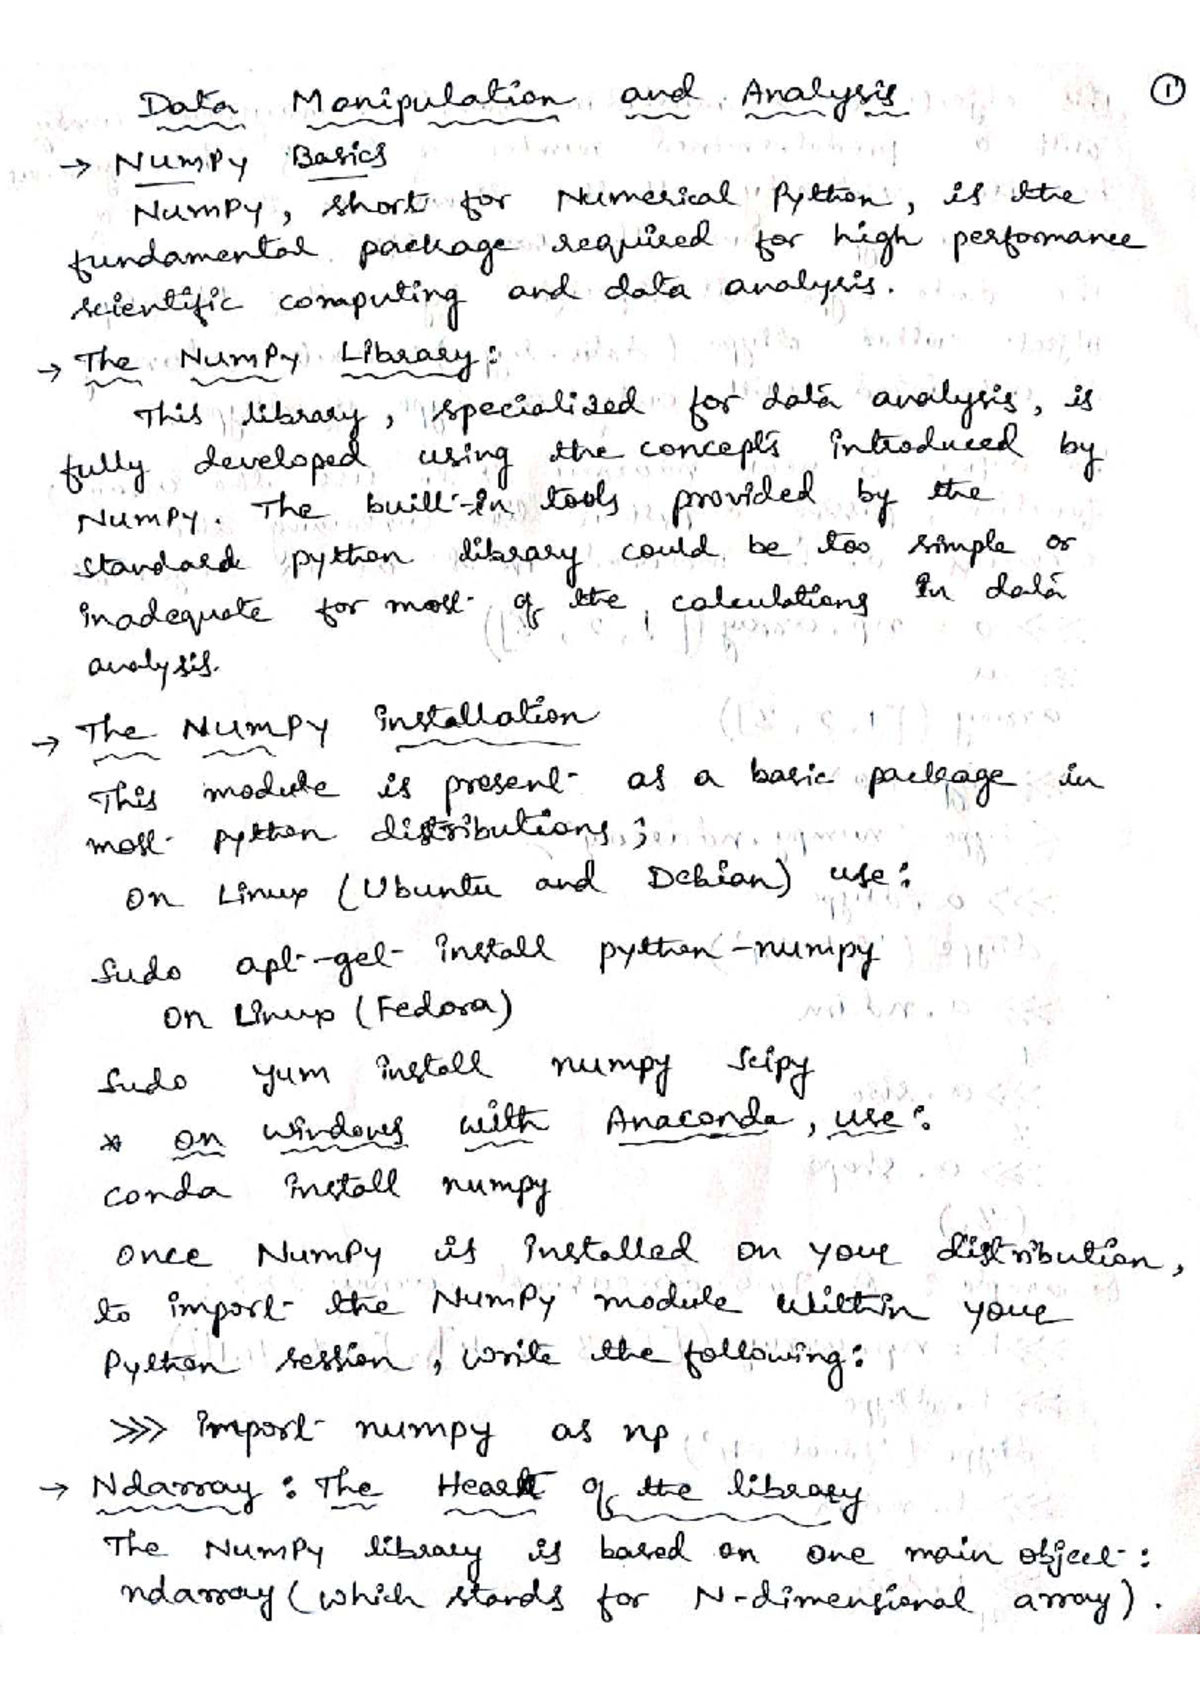 Data Manipulation and Analysis
①
→ NumPy Basics
NumPy, short for Numerical Python, is the
fundamental package required for high performance
scientific computing and data analysis.
→ The NumPy Library:
This library, specialized for data analysis, is
fully developed using the concepts introduced by
NumPy. The built-in tools provided by the
standard python library could be too simple or
inadequate for most of the calculations in data
analysis.
→ The NumPy installation
This module is present as a basic package in
most python distributions;
On Linux (Ubuntu and Debian) use:
Sudo apt-get install python-numpy
On Linux (Fedora)
Sudo yum install numpy scipy
* On windows with Anaconda, use:
conda install numpy
Once NumPy is installed on your distribution,
to import the NumPy module within your
Python session, write the following:
>>> import numpy as np
→ Ndarray: The Heart of the library
The NumPy library is based on one main object:
ndarray (which stands for N-dimensional array).